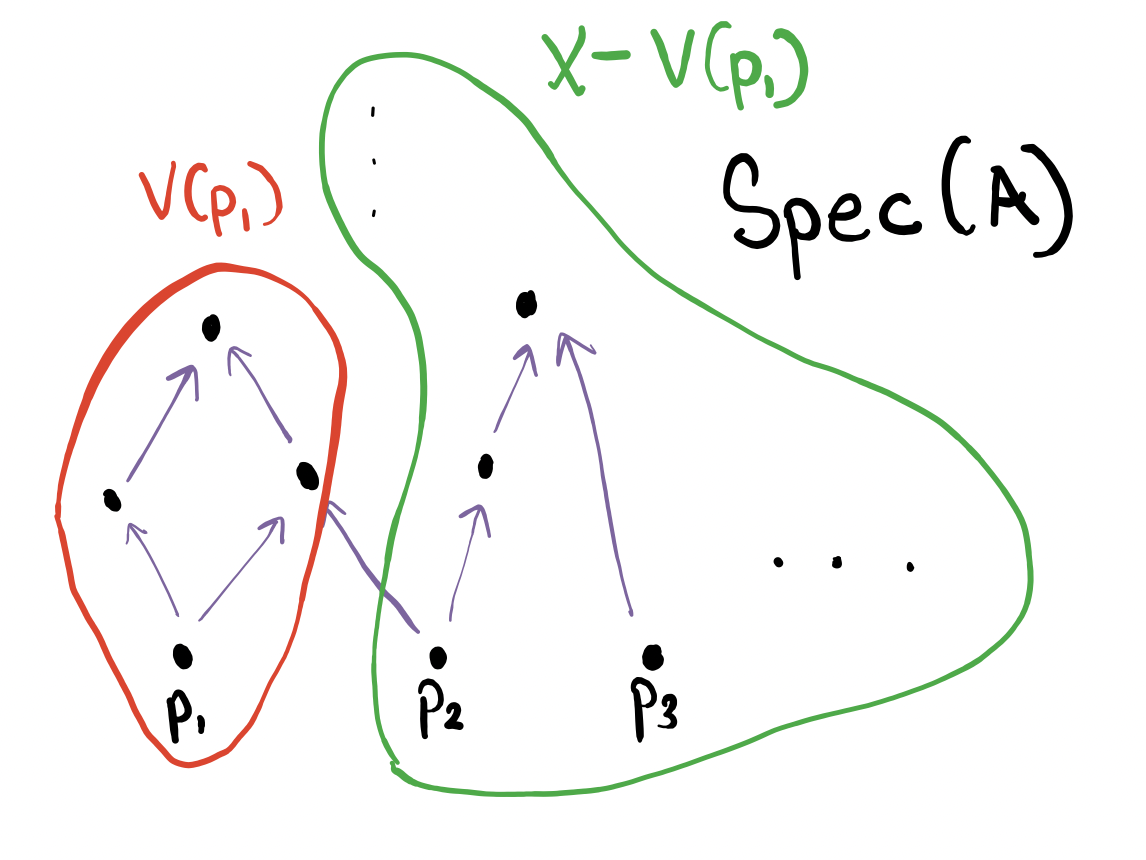 X - V(p₁)
V(p₁)
Spec(A)
p₁
p₂
p₃